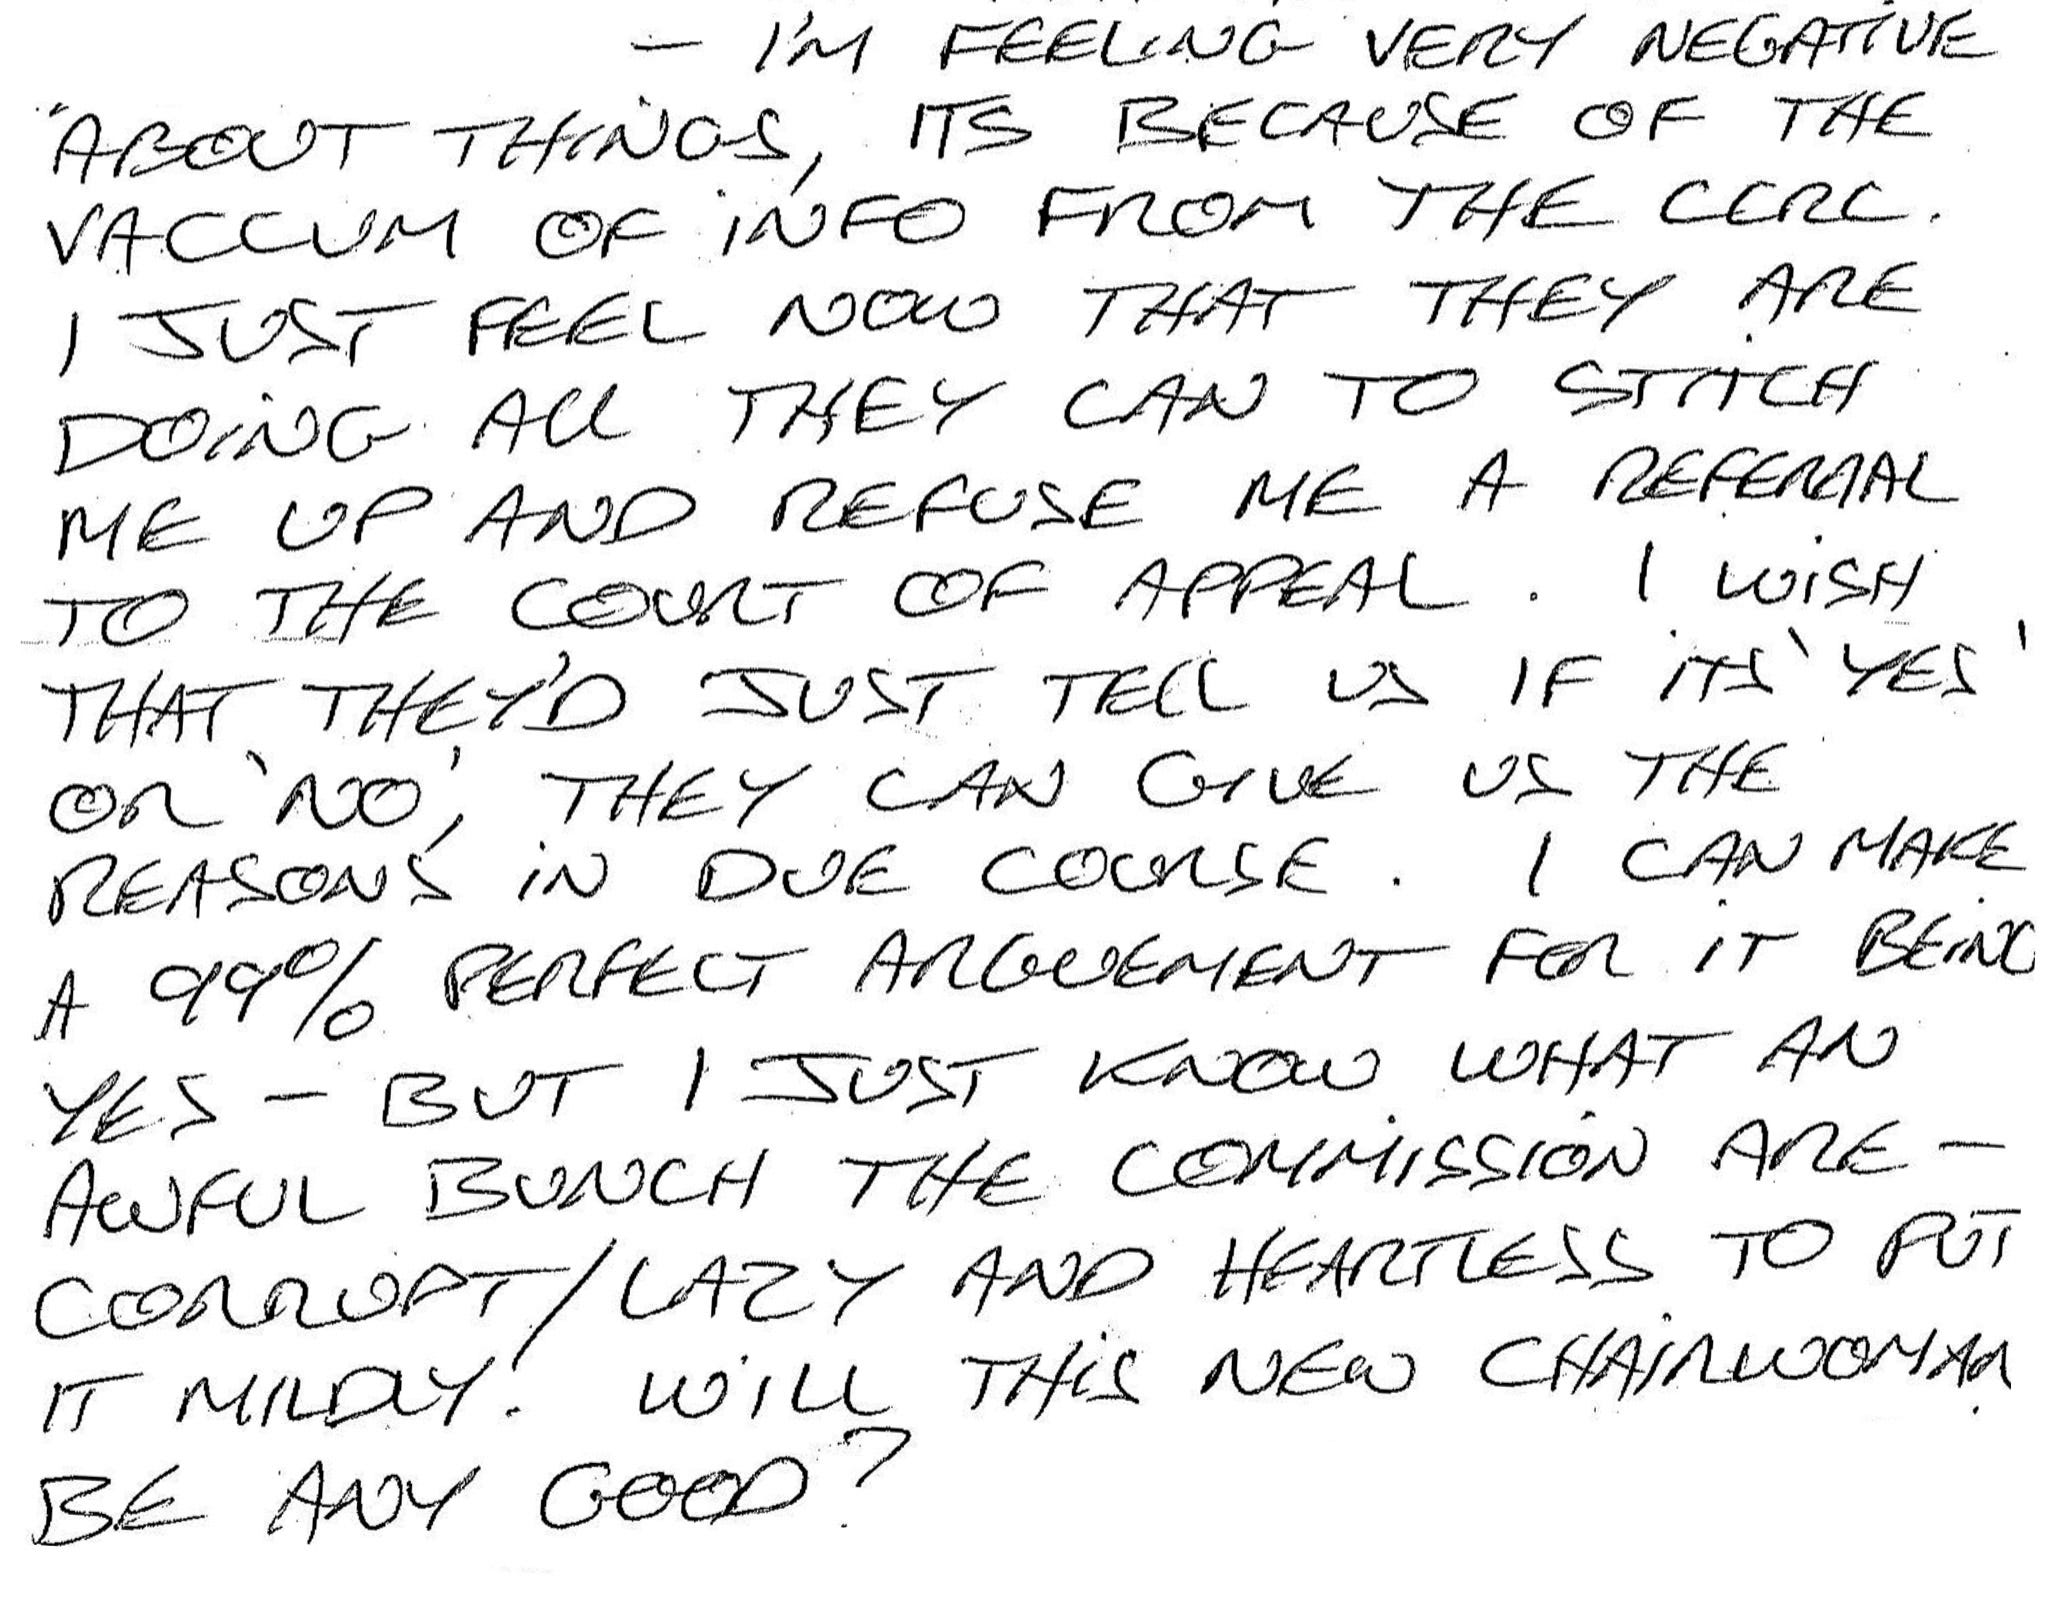 - I'M FEELING VERY NEGATIVE
ABOUT THINGS, ITS BECAUSE OF THE
VACCUM OF INFO FROM THE CCRC.
I JUST FEEL NOW THAT THEY ARE
DOING ALL THEY CAN TO STITCH
ME UP AND REFUSE ME A REFERRAL
TO THE COURT OF APPEAL. I WISH
THAT THEY'D JUST TELL US IF ITS 'YES'
OR 'NO', THEY CAN GIVE US THE
REASONS IN DUE COURSE. I CAN MAKE
A 99% PERFECT ARGUEMENT FOR IT BEING
YES - BUT I JUST KNOW WHAT AN
AWFUL BUNCH THE COMMISSION ARE -
CORRUPT/LAZY AND HEARTLESS TO PUT
IT MILDLY! WILL THIS NEW CHAIRWOMAN
BE ANY GOOD?